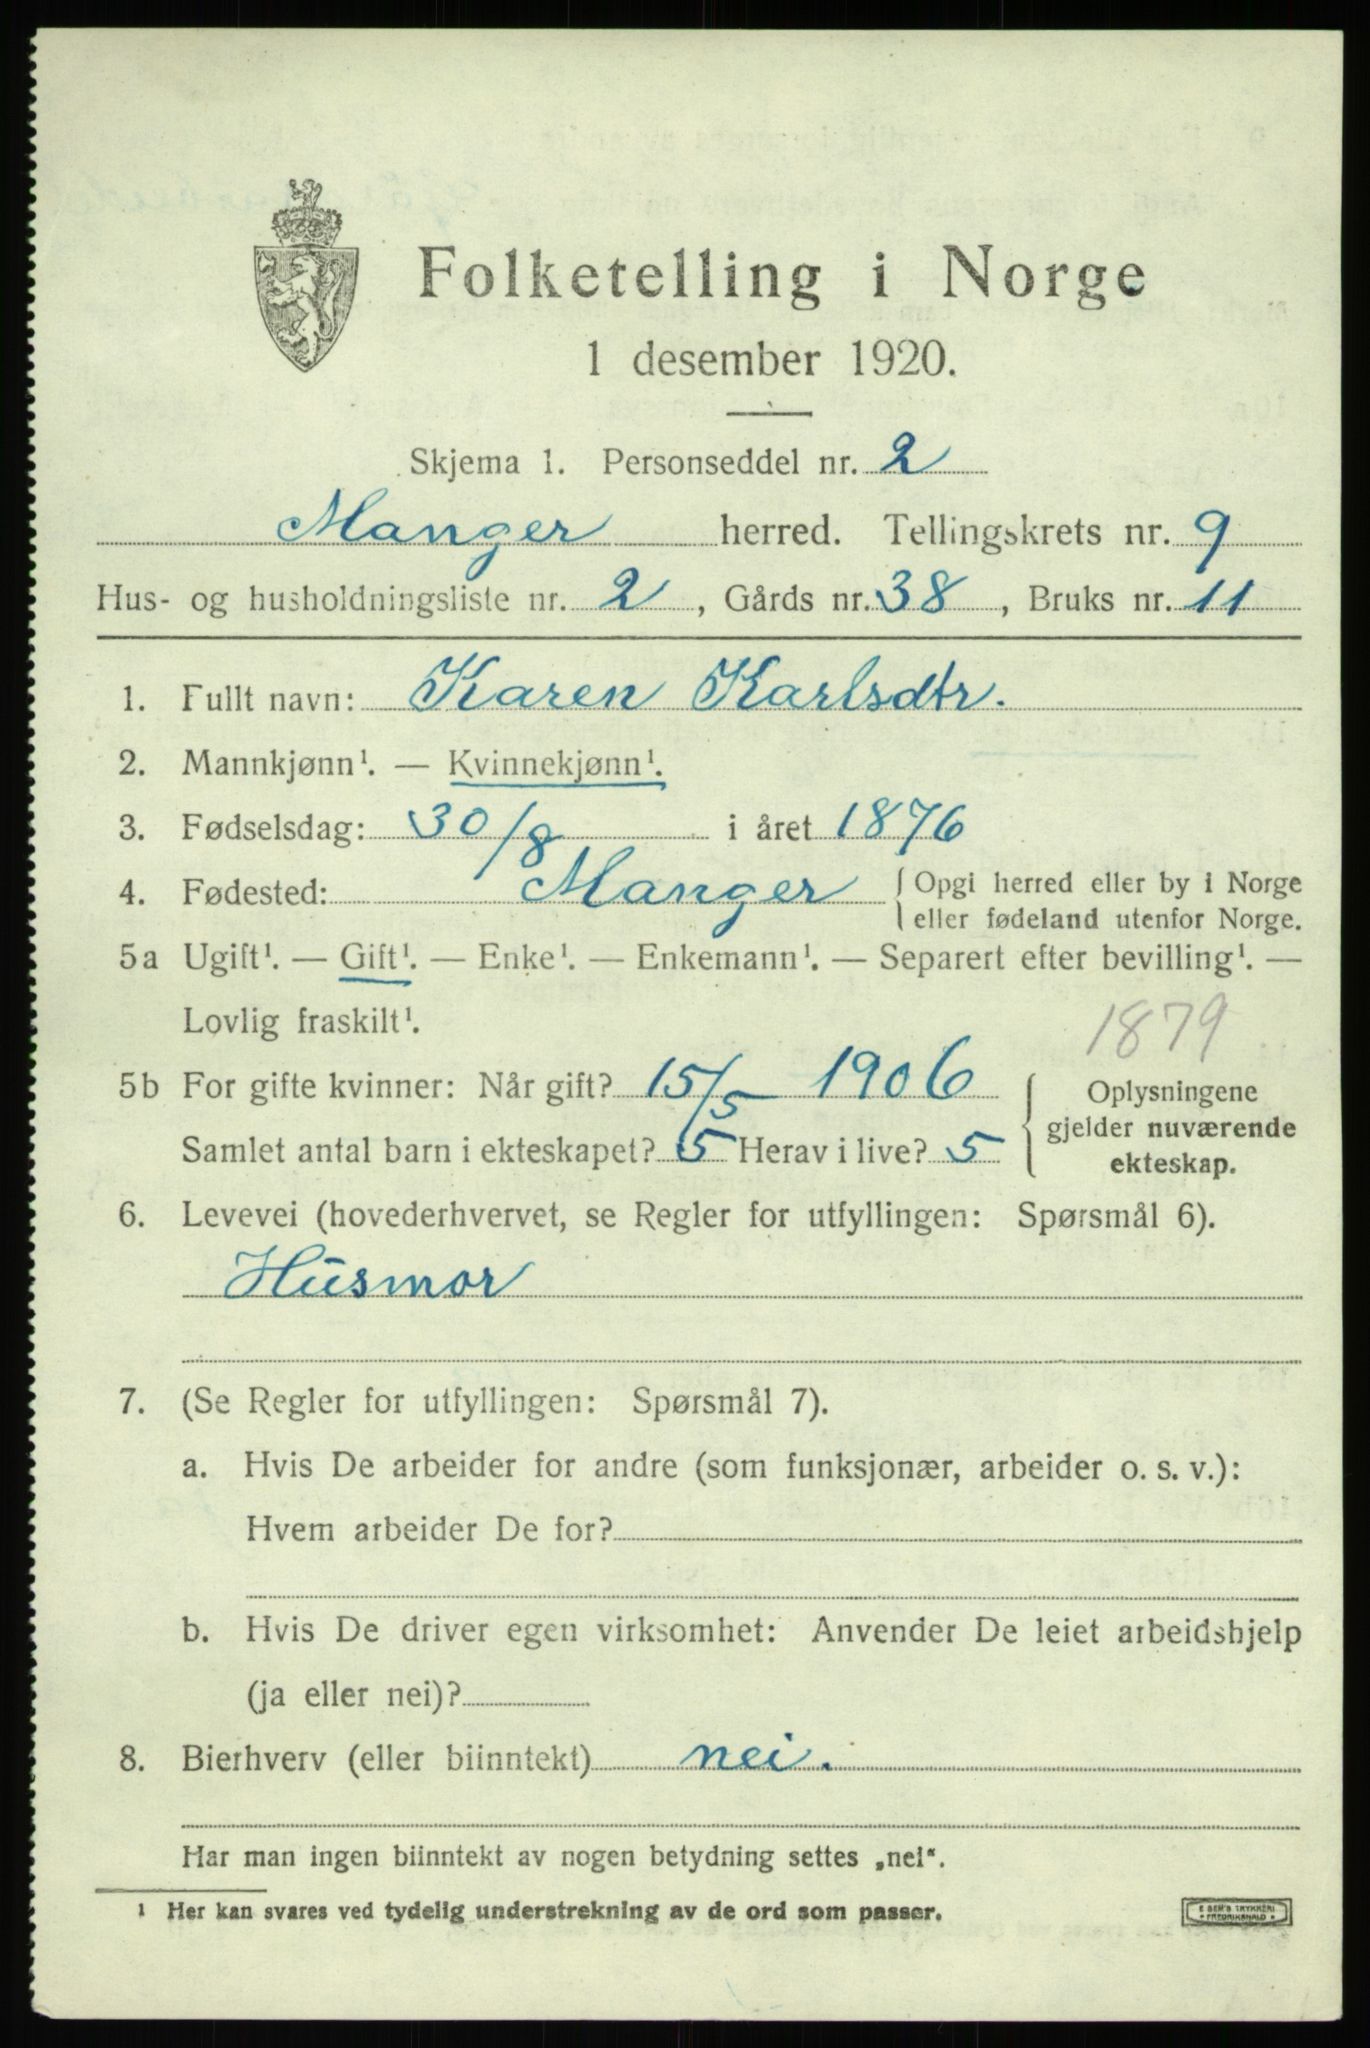 Folketelling i Norge
1 desember 1920.
Skjema 1. Personseddel nr. 2
Manger herred. Tellingskrets nr. 9
Hus- og husholdningsliste nr. 2, Gårds nr. 38, Bruks nr. 11
1. Fullt navn: Karen Karlsdtr.
2. Mannkjønn¹. — Kvinnekjønn¹.
3. Fødselsdag: 30/8 i året 1876
4. Fødested: Manger { Opgi herred eller by i Norge
eller fødeland utenfor Norge.
5a Ugift¹. — Gift¹. — Enke¹. — Enkemann¹. — Separert efter bevilling¹. —
Lovlig fraskilt¹.
1879
5b For gifte kvinner: Når gift? 15/5 1906
Samlet antal barn i ekteskapet? 5 Herav i live? 5
{ Oplysningene
gjelder nuværende
ekteskap.
6. Levevei (hovederhvervet, se Regler for utfyllingen: Spørsmål 6).
Husmor
7. (Se Regler for utfyllingen: Spørsmål 7).
a. Hvis De arbeider for andre (som funksjonær, arbeider o. s. v.):
Hvem arbeider De for?
b. Hvis De driver egen virksomhet: Anvender De leiet arbeidshjelp
(ja eller nei)?
8. Bierhverv (eller biinntekt) nei.
Har man ingen biinntekt av nogen betydning settes „nei“.
¹ Her kan svares ved tydelig understrekning av de ord som passer.
E SEM'S TRYKKERI
FREDRIKSHALD